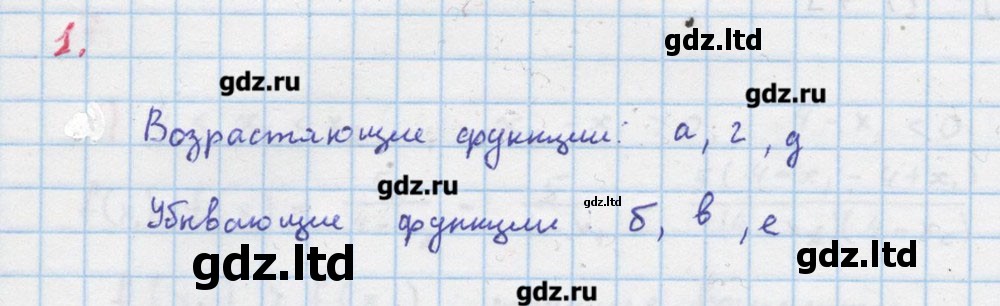 1.
gdz.ltd
gdz.ru
gdz.ru
Возрастающие функции: а, г, д
gdz.ru
gdz.ltd
Убывающие функции: б, в, е
gdz.ltd
gdz.ru